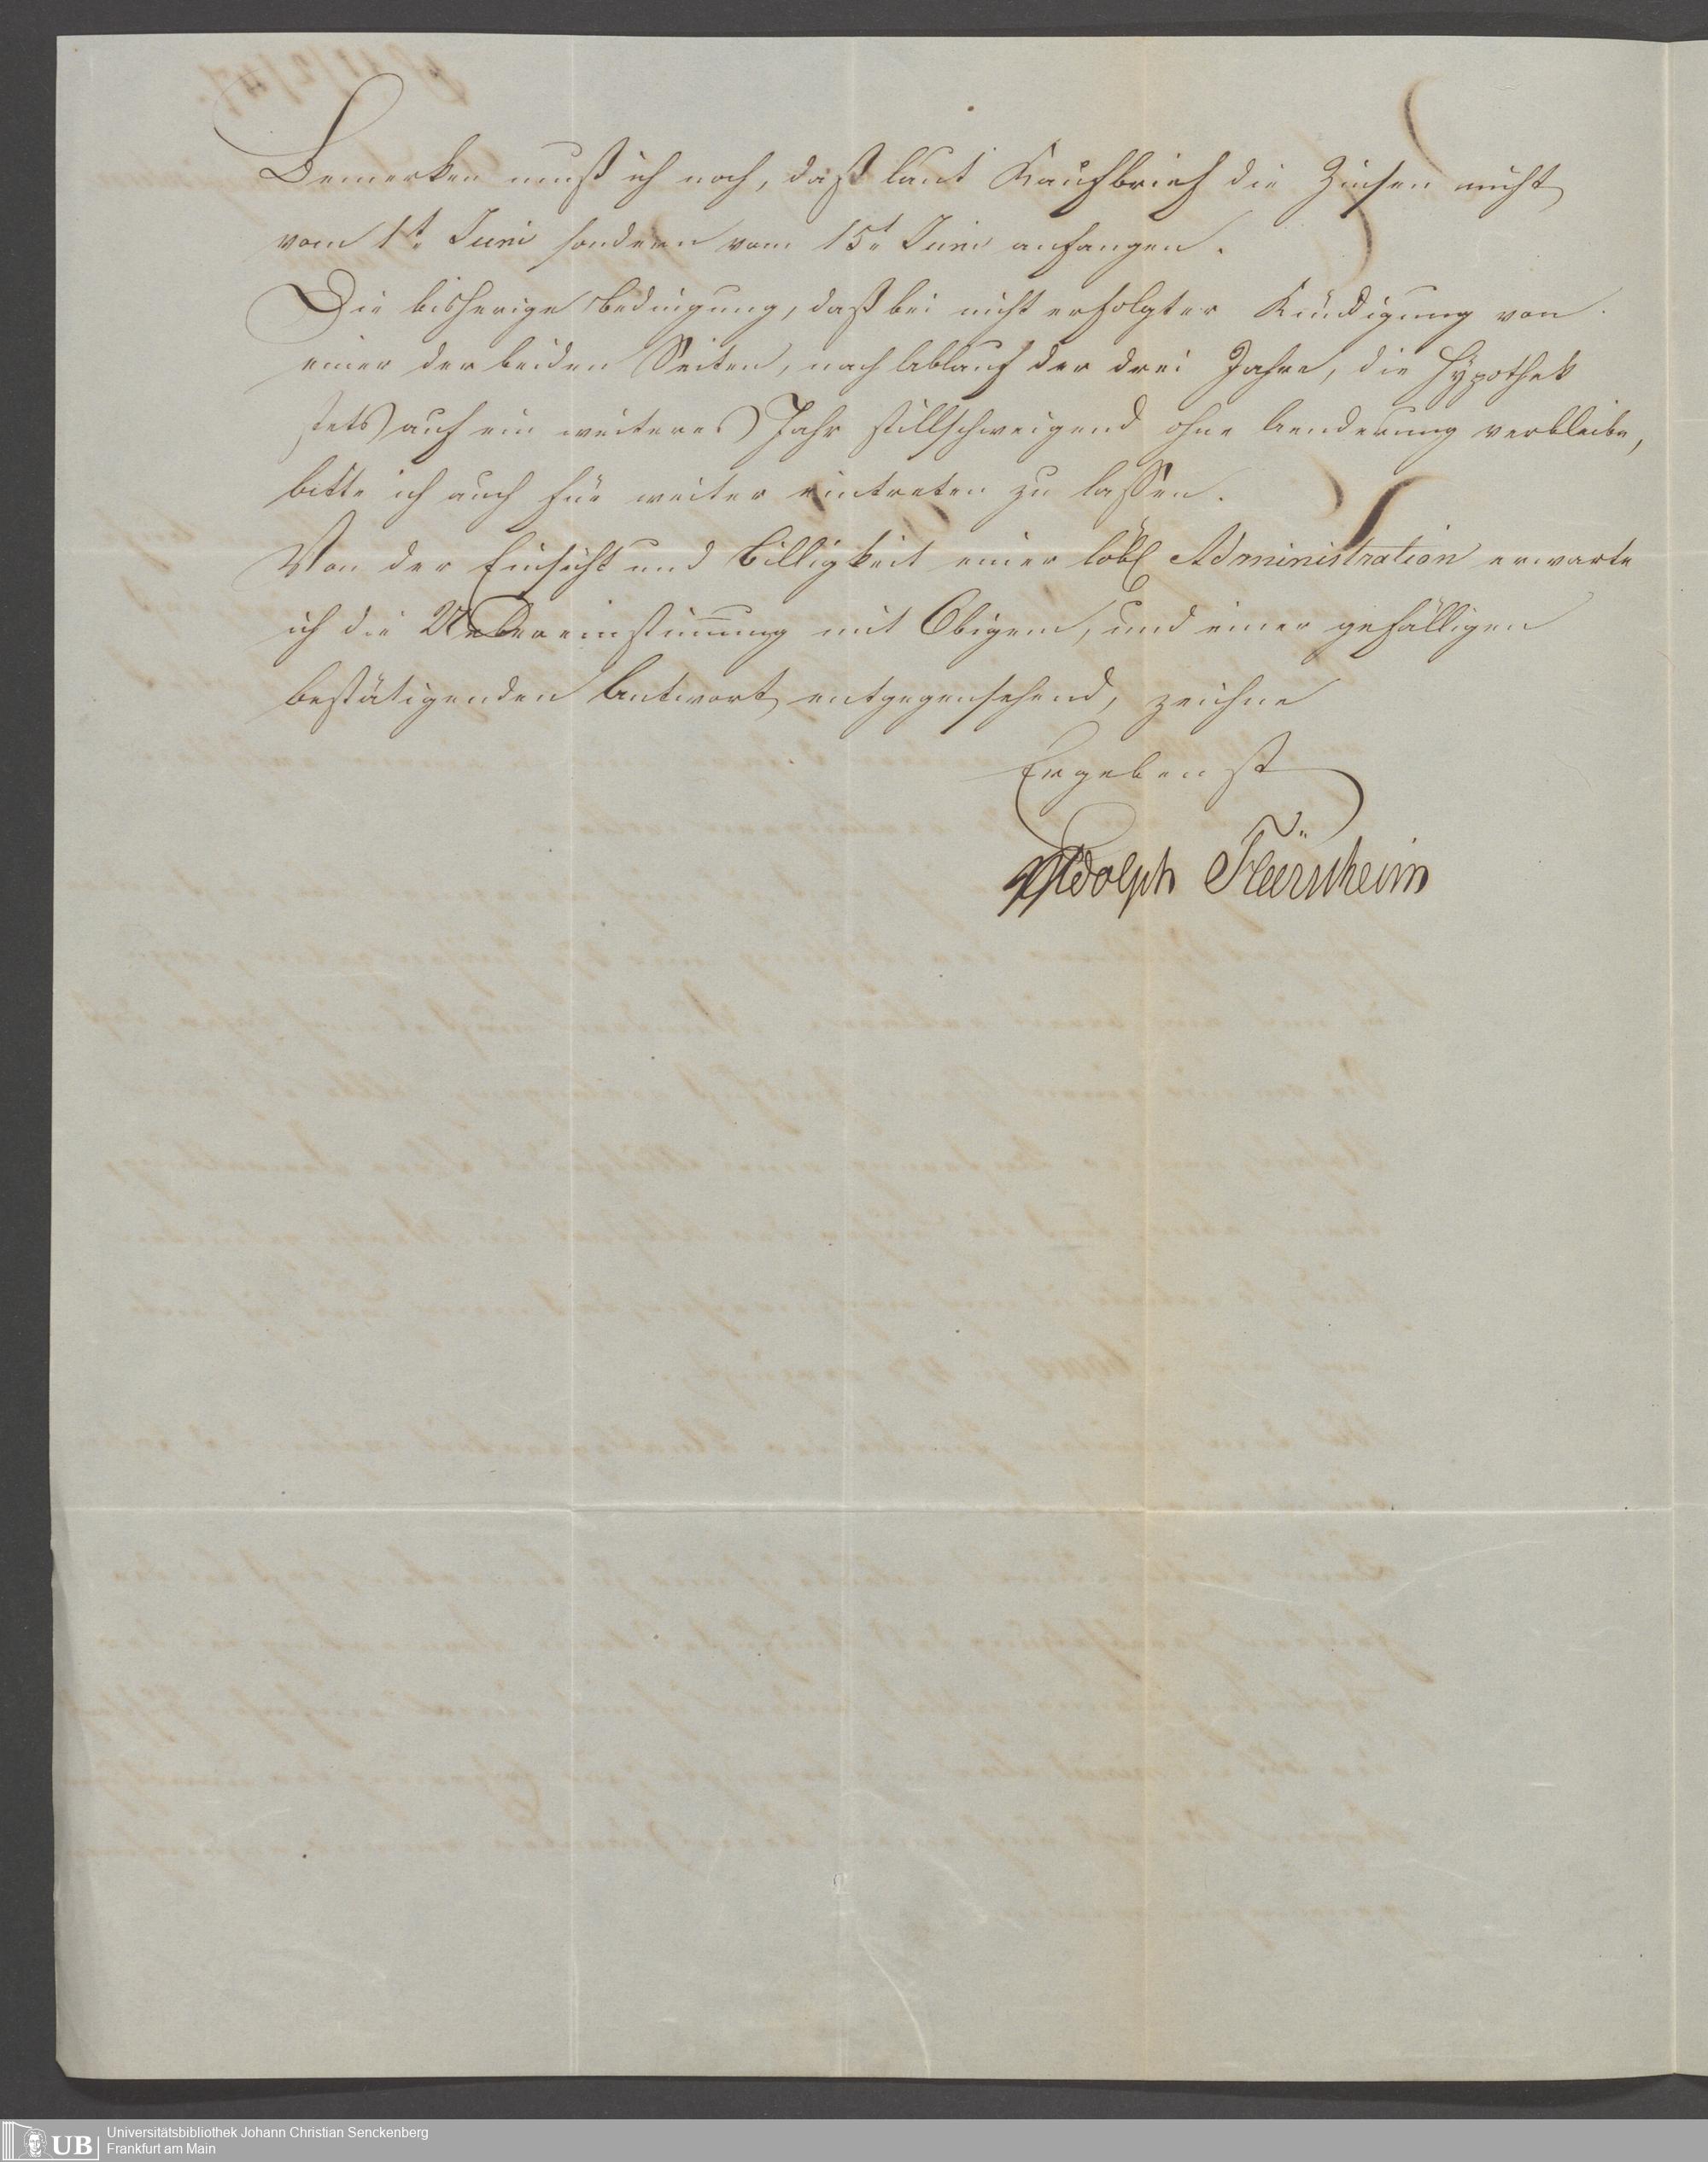 Bemerken muß ich noch, daß laut Kaufbrief die Zinsen nicht
vom 1t. Juni sondern vom 15t. Juni anfangen.
Die bisherige Bedingung, daß bei nicht erfolgter Kündigung von
einer der beiden Seiten, nach Ablauf der drei Jahre, die Hÿpothek
stets auf ein weiteres Jahr stillschweigend ohne Aenderung verbleibe,
bitte ich auch für weiter eintreten zu lassen.
Von der Einsicht und Billigkeit einer löbl Administration erwarte
ich die Uebereinstim̅ung mit Obigem, und einer gefälligen
bestätigenden Antwort entgegensehend, zeichne
Ergebenst
Adolph Flörsheim
UB
Universitätsbibliothek Johann Christian Senckenberg
Frankfurt am Main